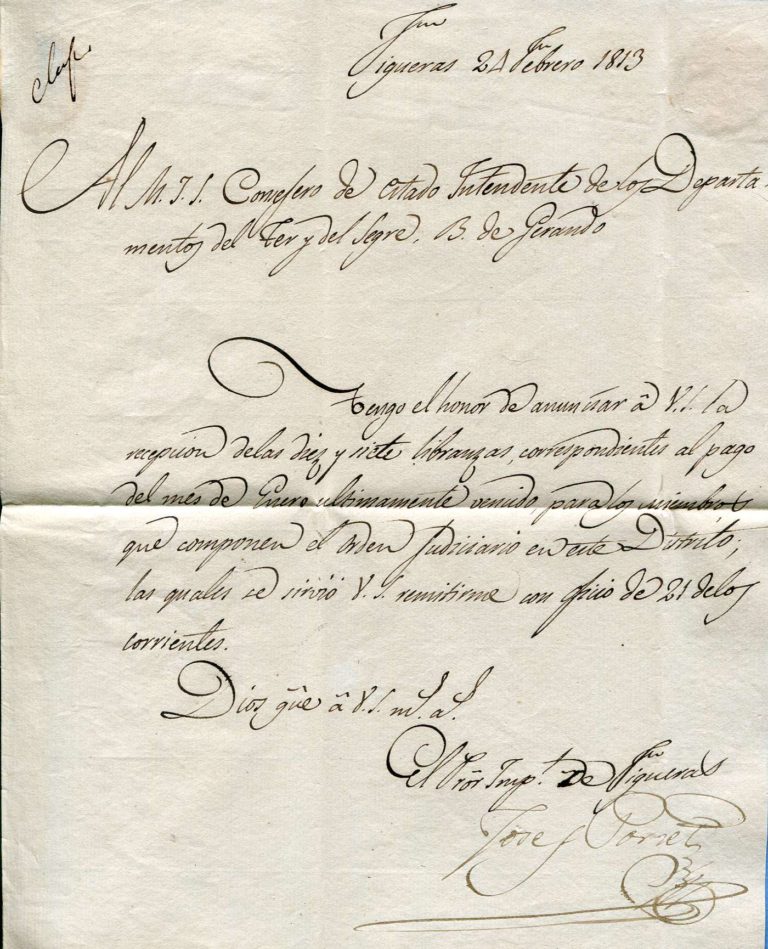 Figueras 24 Febrero 1813
Al M. I. S. Consejero de estado Intendente de los Departa-
mentos del Ter y del Segre, B. de Gerando
Tengo el honor de anunciar â V.S. la
recepcion delas diez y siete libranzas, correspondientes al pago
del mes de Enero ultimamente vencido, para los miembros
que componen el orden Judiciario en este Distrito;
las quales se sirviô V.S. remitirme con oficio de 21 delos
corrientes.
Dios gûe â V.S. ms. as.
El Pror Impl. de Figueras
Josef